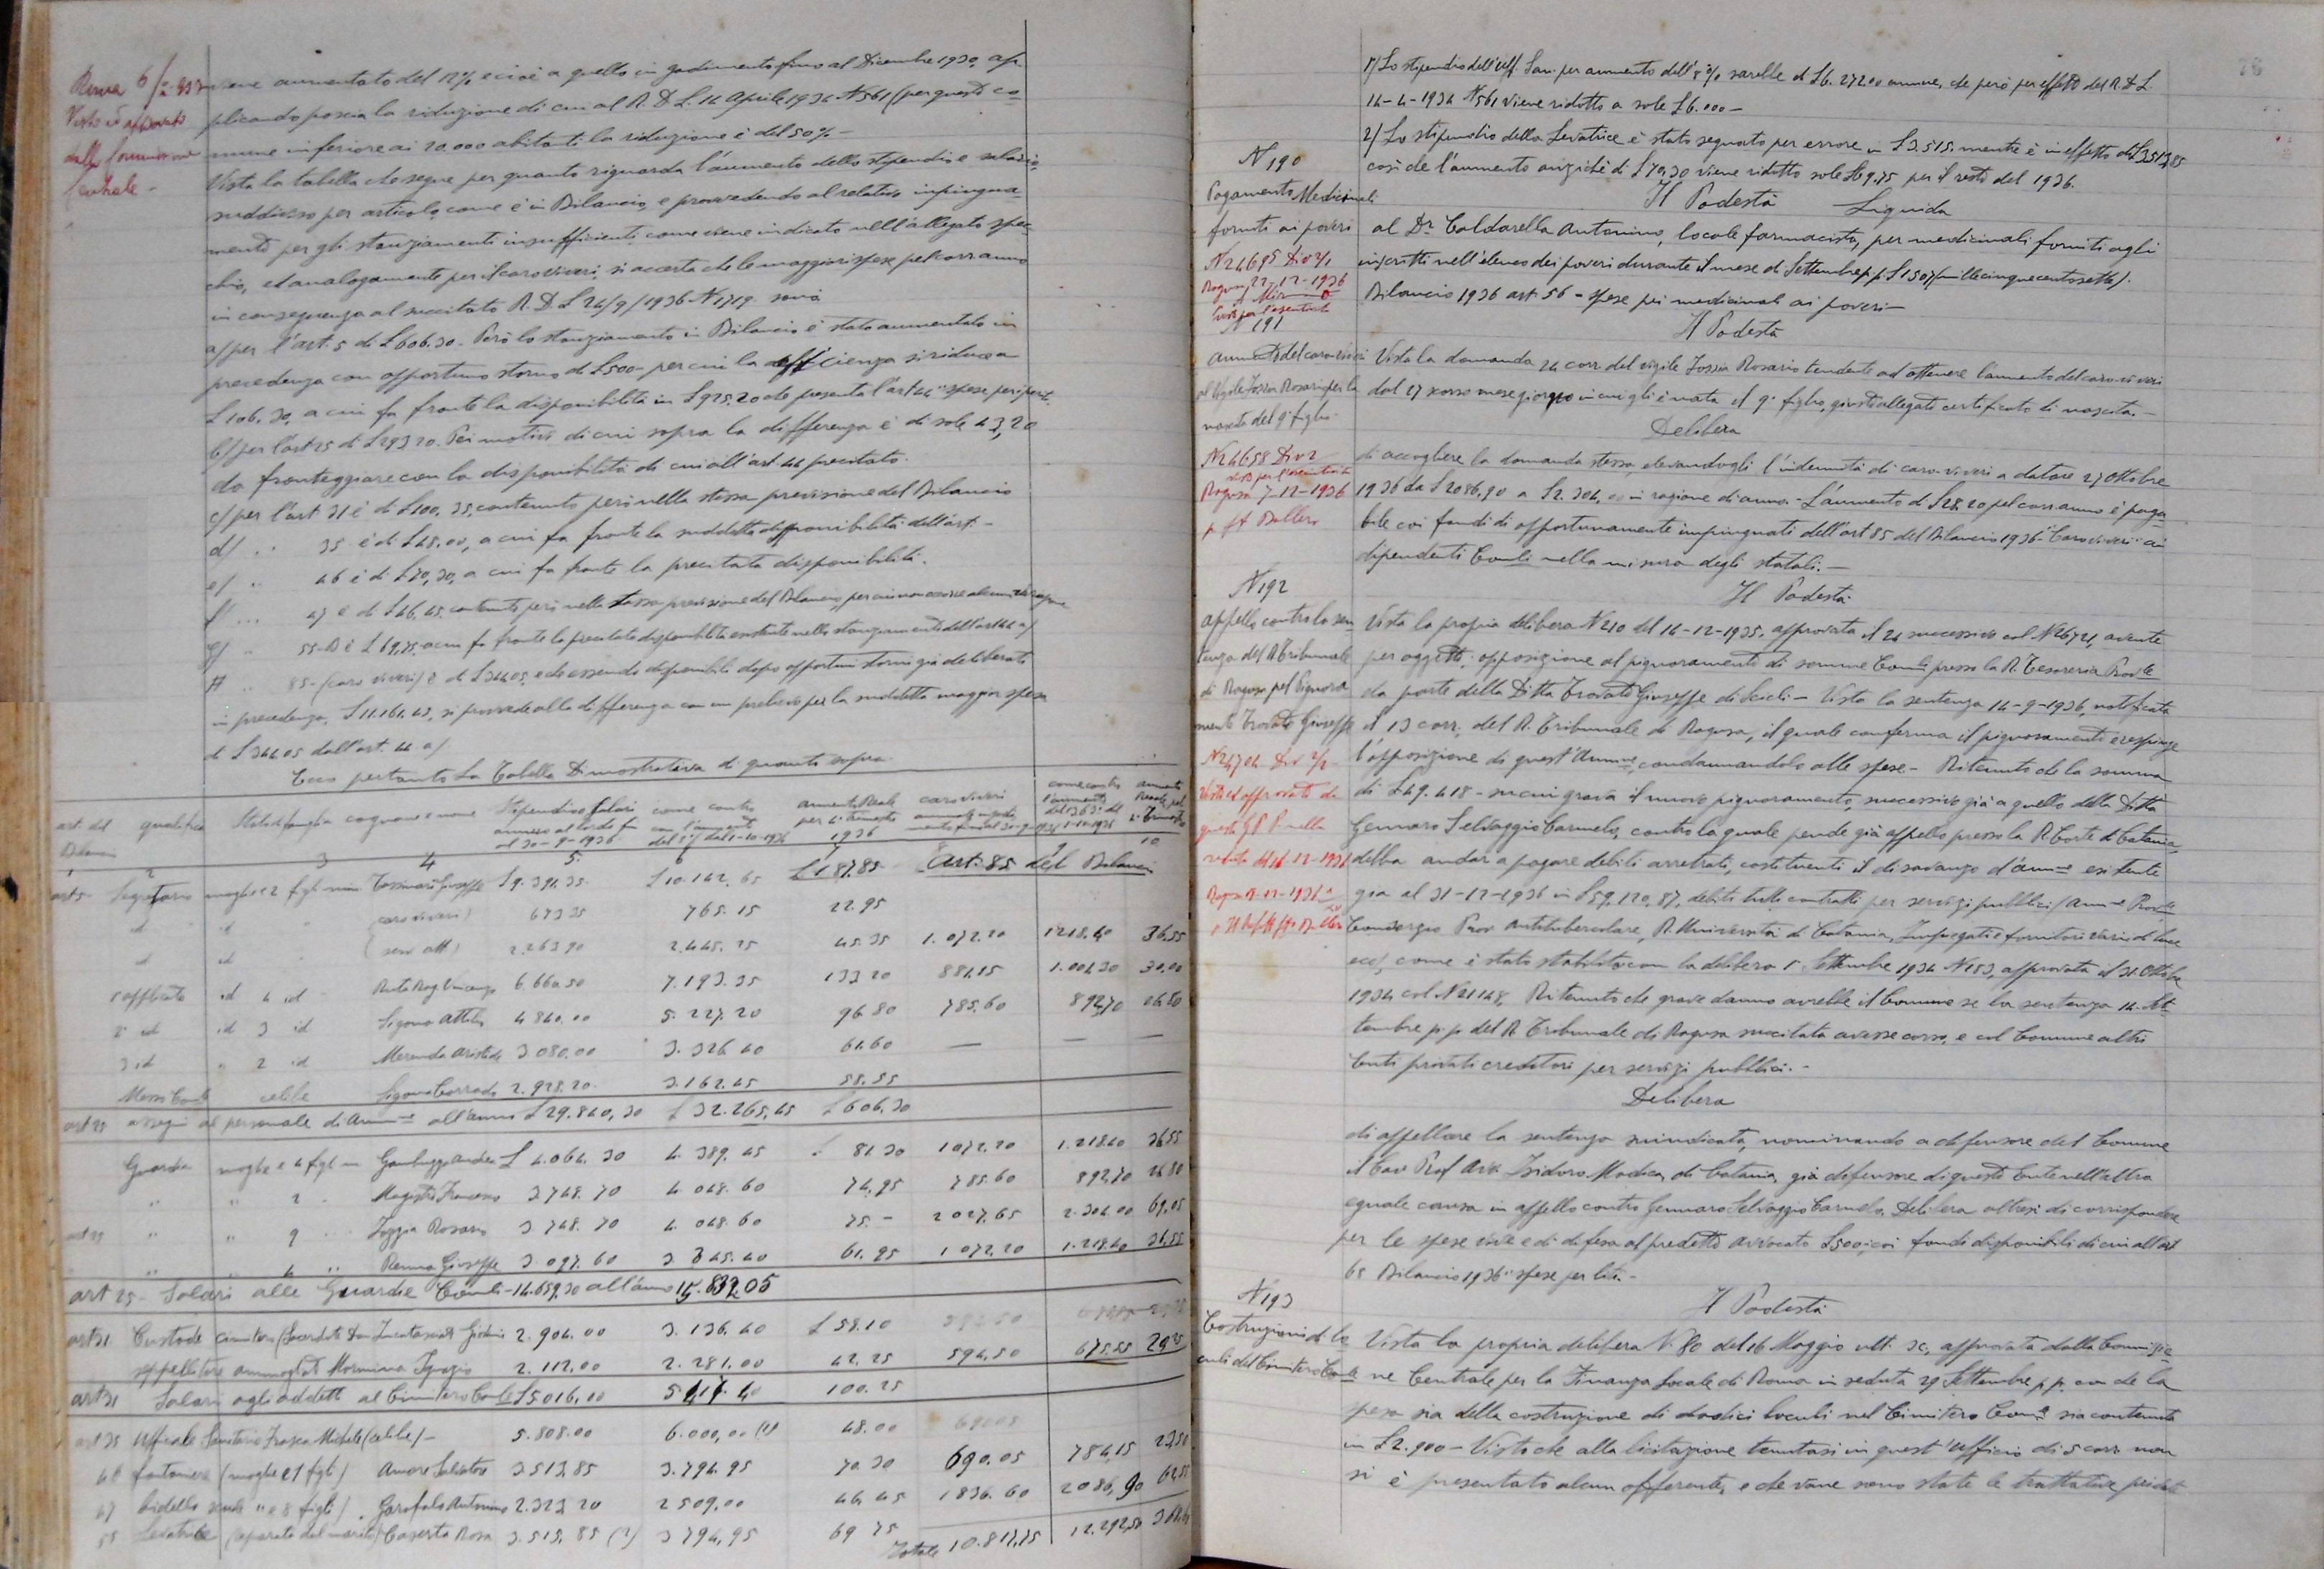 Roma 6/2-937
Visto ed approvato
dalla Commissione
Centrale -
viene aumentato del 12% e cioè a quello in godimento fino al Dicembre 1930, ap
plicando poscia la riduzione di cui al R. D. L. 14 Aprile 1934 N 561 (per questo co-
mune inferiore ai 20.000 abitanti la riduzione è del 50% -
Vista la tabella che segue per quanto riguarda l'aumento dello stipendio e salario,
suddiviso per articolo, come è in Bilancio, e provvedendo al relativo impingua-
mento per gli stanziamenti insufficienti come viene indicato nell'allegato spec-
chio, ed analogamente per il caro viveri, si accerta che le maggiori spese pel corr anno
in conseguenza al succitato R. D L 24/9/1936 N 1719 sono
a/ per l'art. 5 di L 606.30 - Però lo stanziamento in Bilancio è stato aumentato in
precedenza con opportuno storno di L 500 - per cui la defficienza si riduce a
L 106.30, a cui fa fronte la disponibilità in L 925.20 che presenta l'art 44 "spese per
b/ per l'art 25 di L 293.20. Pei motivi di cui sopra la differenza è di sole 43,20
da fronteggiare con la disponibilità di cui all'art. 44 precitato.
c/ per l'art. 31 è di L 100.35, contenuto però nella stessa previsione del Bilancio
d/ .. 35 è di L 48.00, a cui fa fronte la suddetta disponibilità dell'art. -
e/ .. 46 è di L 70,30, a cui fa fronte la precitata disponibilità.
f/ ... 47 è di L 46.45, contenuto però nella stessa previsione del Bilancio, per cui non occorre alcuna
g/ .. 55 - D è L 69,75, a cui fa fronte la precitata disponibilità esistente nello stanziamento dell'art 44 a/
H .. 85 - (caro viveri) è di L 344.05, e che essendo disponibili dopo opportuni storni già deliberati
in precedenza, L 11.161.43, si provvede alla differenza con un prelievo per la suddetta maggior spesa
di L 344.05 dall'art. 44 a/
Ecco pertanto La Tabella Dimostrativa di quanto sopra.
art. del Bilancio qualifica Stato di famiglia cognome e nome Stipendio o Salari annuo al lordo fino al 30-9-1936 come contro con l'aumento dell'8% dal 1-10-1936 aumento Reale per 4° trimestre 1936 caro viveri
1 2 3 4 5 10
art 5 Segretario moglie e 2 figli min Tossinari Giuseppe L 9.391.35 L 10.142,65 L 187.85 Art. 85 del Bilancio
id id " (caro viveri) 673 35 765.15 22.95
id id " (serv. att) 2.263 90 2.445.25 45.35 1.072.20 1218.40 36.55
1° applicato id 4 id 6.660.50 7.193.35 133 20 881.15 1.001,30 30.00
2° id id 3 id Sigona Attilio 4.840.00 5.227.20 96 80 785.60 892,70 26.80
3 id " 2 id Merenda Aristide 3.080.00 3.326 40 61.60 — — —
Messo Com.le celibe Sigona Corrado 2.928.20 3.162.45 58.55
art 25 assegni al personale di Amm.ne all'anno L 29.840,30 L 32.265,45 L 606.30
Guardia moglie e 4 figli m Gambuzza Andrea L 4.064.30 4.389.45 81 30 1072.20 1.218.40 36 55
" " 2 Magistro Francesco 3.748.70 4.048.60 74.95 785.60 892,70 26 80
art 25 " " 9 Zoggia Rosario 3 748.70 4.048.60 75.- 2027.65 2.304.00 69,05
" " 4 " Renna Giuseppe 3.097.60 3 345.40 61.95 1072.20 1.218.40 36.55
art 25 - Salari alle Guardie Com.li - 14.659.30 all'anno 15.832.05
art 31 Custode cimitero (Sacerdote Don 2.904.00 3.136.40 L 58.10
seppellitore ammogliato Mormina Ignazio 2.112.00 2.281.00 42.25 594,50 675.55 20.25
art 31 Salari agli addetti al Cimitero Com.le L 5.016,00 5417.40 100.35
art 35 Ufficiale Sanitario Frasca Michele (celibe) - 5.808.00 6.000,00 (1) 48.00
46 fontaniere (moglie e 1 figli) Amore Salvatore 3.513.85 3.794.95 70.30 690.05 784,15 23,50
47 bidello scuole " e 8 figli) Garofalo Antonino 2.323 20 2 509,00 46.45 1836.60 2086,90 62.55
55 Levatrice (separata dal marito) Caserta Rosa 3.515,85 (2) 3 794,95 69 75
Totale 10.817,75 12.292,50
28
1/ Lo stipendio dell'uff. San. per aumento dell'8% sarebbe di L 6.272.00 annue, che però per effetto del R. D. L.
14-4-1934 N 561 viene ridotto a sole L 6.000 -
2/ Lo stipendio della Levatrice è stato segnato per errore in L 3.515. mentre è in effetto di L 3.513,85
così che l'aumento anziché di L 70,30 viene ridotto sole L 69,75 per il resto del 1936.
N 190
Pagamento Medicinali
forniti ai poveri
N 24695 Div 2/1
Ragusa, 22-12-1936
N 191
Il Podestà Liquida
al Dr. Caldarella Antonino, locale farmacista, per medicinali forniti agli
inscritti nell'elenco dei poveri durante il mese di Settembre p.p. L 1507 (millecinquecentosette).
Bilancio 1936 art. 56 - spese pei medicinali ai poveri -
Il Podestà
aumento del caro-viveri
al Vigile Zoggia Rosario per la
nascita del 9° figlio.
N 24658 Div 2
Ragusa 7-12-1936
Vista la domanda 24 corr. del vigile Zoggia Rosario tendente ad ottenere l'aumento del caro-viveri
dal 27 scorso mese giorno in cui gli è nato il 9° figlio, giusto allegato certificato di nascita. -
Delibera
di accogliere la domanda stessa, elevandogli l'indennità di caro-viveri a datare 27 Ottobre
1936 da L 2086,90 a L 2.304,00 in ragione di anno. - L'aumento di L 28,20 pel corr anno è paga-
bile coi fondi di opportunamente impinguati dell'art 85 del Bilancio 1936 "Caro viveri" ai
dipendenti Com.li nella misura degli statali. -
N 192
appello contro la sen
tenza del R Tribunale
di Ragusa pel Pignora
mento Trovato Giuseppe
N 24704 Div 2/1
Visto ed approvato da
questa G P A nella
seduta del 16-12-1936
Il Podestà
Vista la propria delibera N 210 del 14-12-1935, approvata il 24 successivo col N 26721, avente
per oggetto: opposizione al pignoramento di somme Com.li presso la R. Tesoreria Prov.le
da parte della Ditta Trovato Giuseppe di Scicli - Vista la sentenza 14-9-1936, notificata
il 13 corr, del R. Tribunale di Ragusa, il quale conferma il pignoramento e respinge
l'opposizione di quest'Amm.ne, condannandola alle spese - Ritenuto che la somma
di L 49.418 - su cui grava il nuovo pignoramento, successivo già a quello della Ditta
Gennaro Selvaggio Carmelo, contro la quale pende già appello presso la R. Corte di Catania,
debba andar a pagare debiti arretrati, costituenti il disavanzo d'amm.ne esistente
già al 31-12-1936 in L 59,120,87, debiti tutti contratti per servizi pubblici (Amm.ne Prov.le
Consorzio Prov Antitubercolare, R. Università di Catania, Impiegati e fornitori varii di luce
ecc), come è stato stabilito con la delibera 1° Settembre 1934 N 153, approvata il 31 Ottobre
1934 col N 21148. Ritenuto che grave danno avrebbe il Comune se la sentenza 14 Set-
tembre p.p. del R. Tribunale di Ragusa succitata avesse corso, e col Comune altri
Enti privati creditori per servizi pubblici. -
Delibera
di appellare la sentenza suindicata, nominando a difensore del Comune
il Cav Prof Avv Isidoro Modica, di Catania, già difensore di questo Ente nell'altra
eguale causa in appello contro Gennaro Selvaggio Carmelo. Delibera altresì di corrispondere
per le spese vive e di difesa al predetto avvocato L 500; coi fondi disponibili di cui all'art
65 Bilancio 1936 "spese per liti. -
N 193
Costruzioni di lo
culi del Cimitero Com.le
Il Podestà
Vista la propria delibera N. 80 del 16 Maggio ult. sc, approvata dalla Commissio-
ne Centrale per la Finanza Locale di Roma in seduta 29 Settembre p.p. con che la
spesa sia della costruzione di dodici loculi nel Cimitero Com.le sia contenuta
in L 2.900 - Visto che alla licitazione tenutasi in quest'ufficio il 5 corr. non
si è presentato alcun offerente, e che vane sono state le trattative